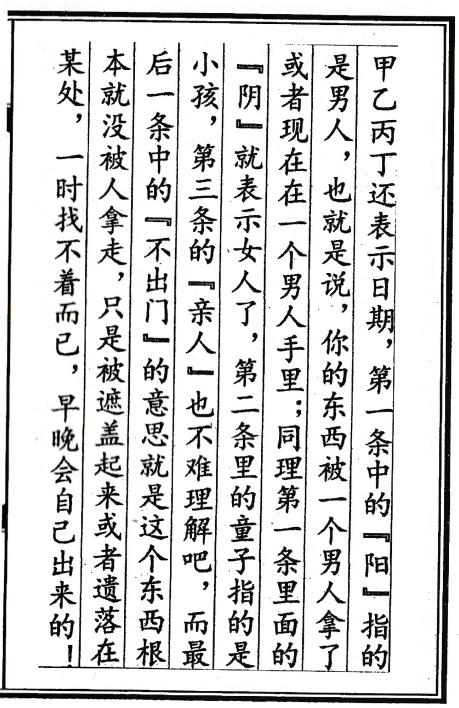 甲乙丙丁还表示日期，第一条中的『阳』指的
是男人，也就是说，你的东西被一个男人拿了
或者现在在一个男人手里；同理第一条里面的
『阴』就表示女人了，第二条里的童子指的是
小孩，第三条的『亲人』也不难理解吧，而最
后一条中的『不出门』的意思就是这个东西根
本就没被人拿走，只是被遮盖起来或者遗落在
某处，一时找不着而已，早晚会自己出来的！